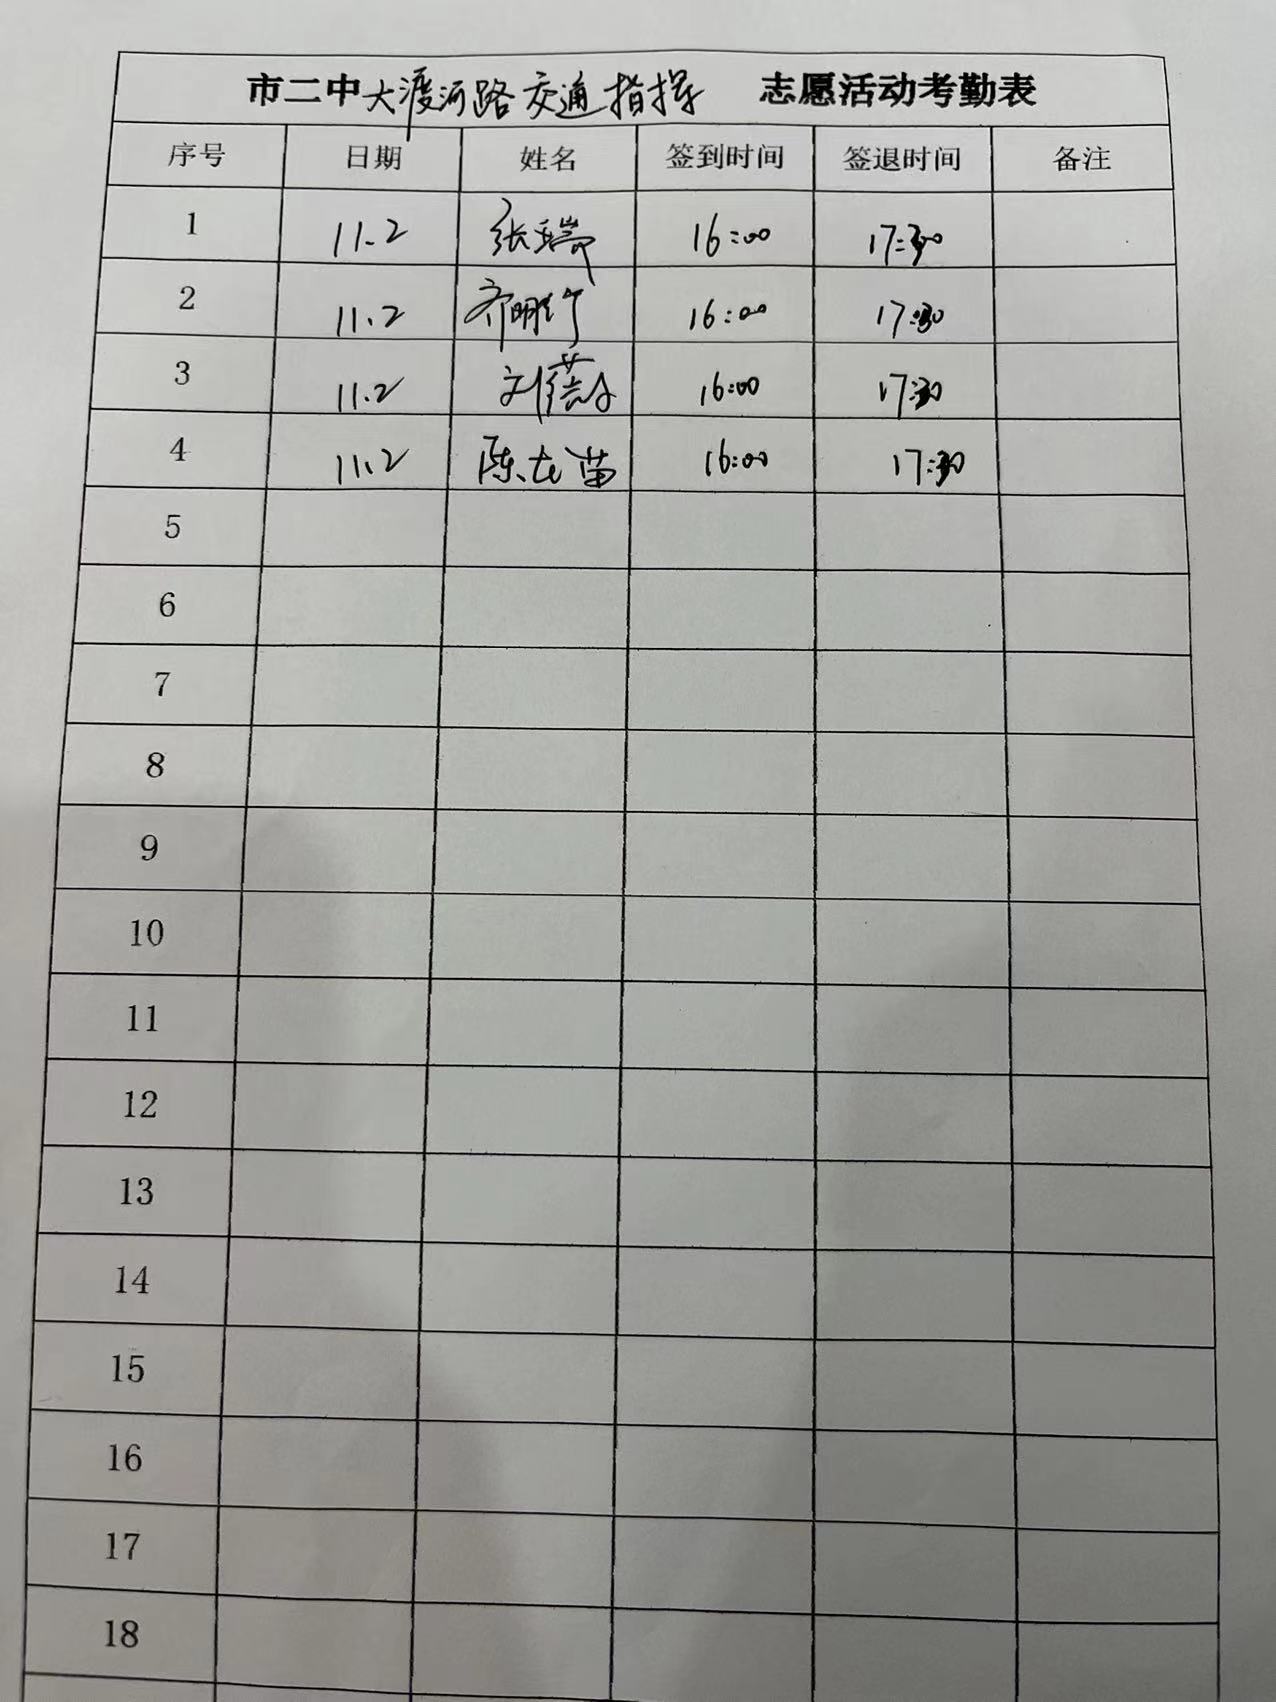 市二中大渡河路交通指挥 志愿活动考勤表
序号 日期 姓名 签到时间 签退时间 备注
1 11.2 张瑞 16:00 17:30
2 11.2 齐明 16:00 17:30
3 11.2 刘 16:00 17:30
4 11.2 陈龙苗 16:00 17:30
5
6
7
8
9
10
11
12
13
14
15
16
17
18